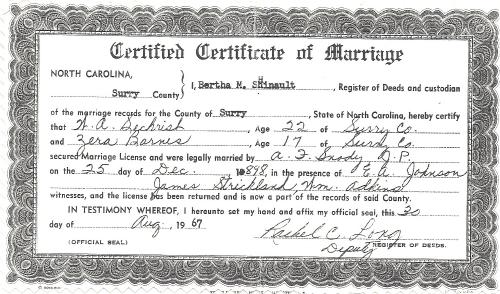 Certified Certificate of Marriage
NORTH CAROLINA,
Surry County
I, Bertha M. SHinault, Register of Deeds and custodian
of the marriage records for the County of Surry, State of North Carolina, hereby certify
that W. A. Age 22 of Surry Co.
and Zera Barnes, Age 17 of Surry Co.
secured Marriage License and were legally married by A. F. Snody J.P.
on the 25 day of Dec. 1898, in the presence of E. A. Johnson
James Strickland, Wm. Adkins
witnesses, and the license has been returned and is now a part of the records of said County.
IN TESTIMONY WHEREOF, I hereunto set my hand and affix my official seal, this 30
day of Aug, 1967
Rachel C. Long
Deputy REGISTER OF DEEDS.
(OFFICIAL SEAL)